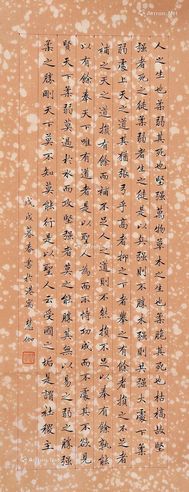 人之生也柔弱其死也堅强萬物草木之生也柔脆其死也枯槁故堅
强者死之徒柔弱者生之徒是以兵强則不勝木强則共强大處下柔
弱處上天之道其猶張弓乎高者抑之下者舉之有餘者損之不足者
補之天之道損有餘而補不足人之道則不然損不足以奉有餘孰能
以有餘奉天下唯有道者是以聖人為而不恃功成而不處其不欲見
賢天下柔弱莫過於水而攻堅强者莫之能勝其無以易之弱之勝强
柔之勝剛天下莫不知莫能行是以聖人云受國之垢是謂社稷主
戊戌暮春書於